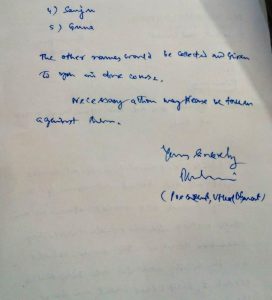 4) Sanju
5) Guna
The other names would be collected and given
to you in done course.
Necessary action may please be taken
against them.
Yours Sincerely
(President,